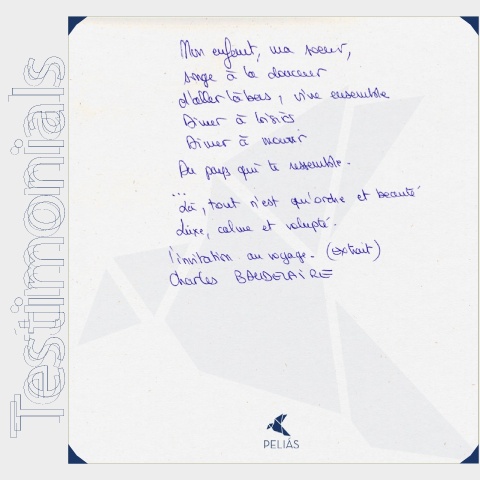 Testimonials
Mon enfant, ma soeur,
songe à la douceur
d'aller là bas, vivre ensemble
Aimer à loisir
Aimer à mourir
Au pays qui te ressemble.
...
Là, tout n'est qu'ordre et beauté
Luxe, calme et volupté.
l'invitation au voyage. (extrait)
Charles BAUDELAIRE
PELIÁS